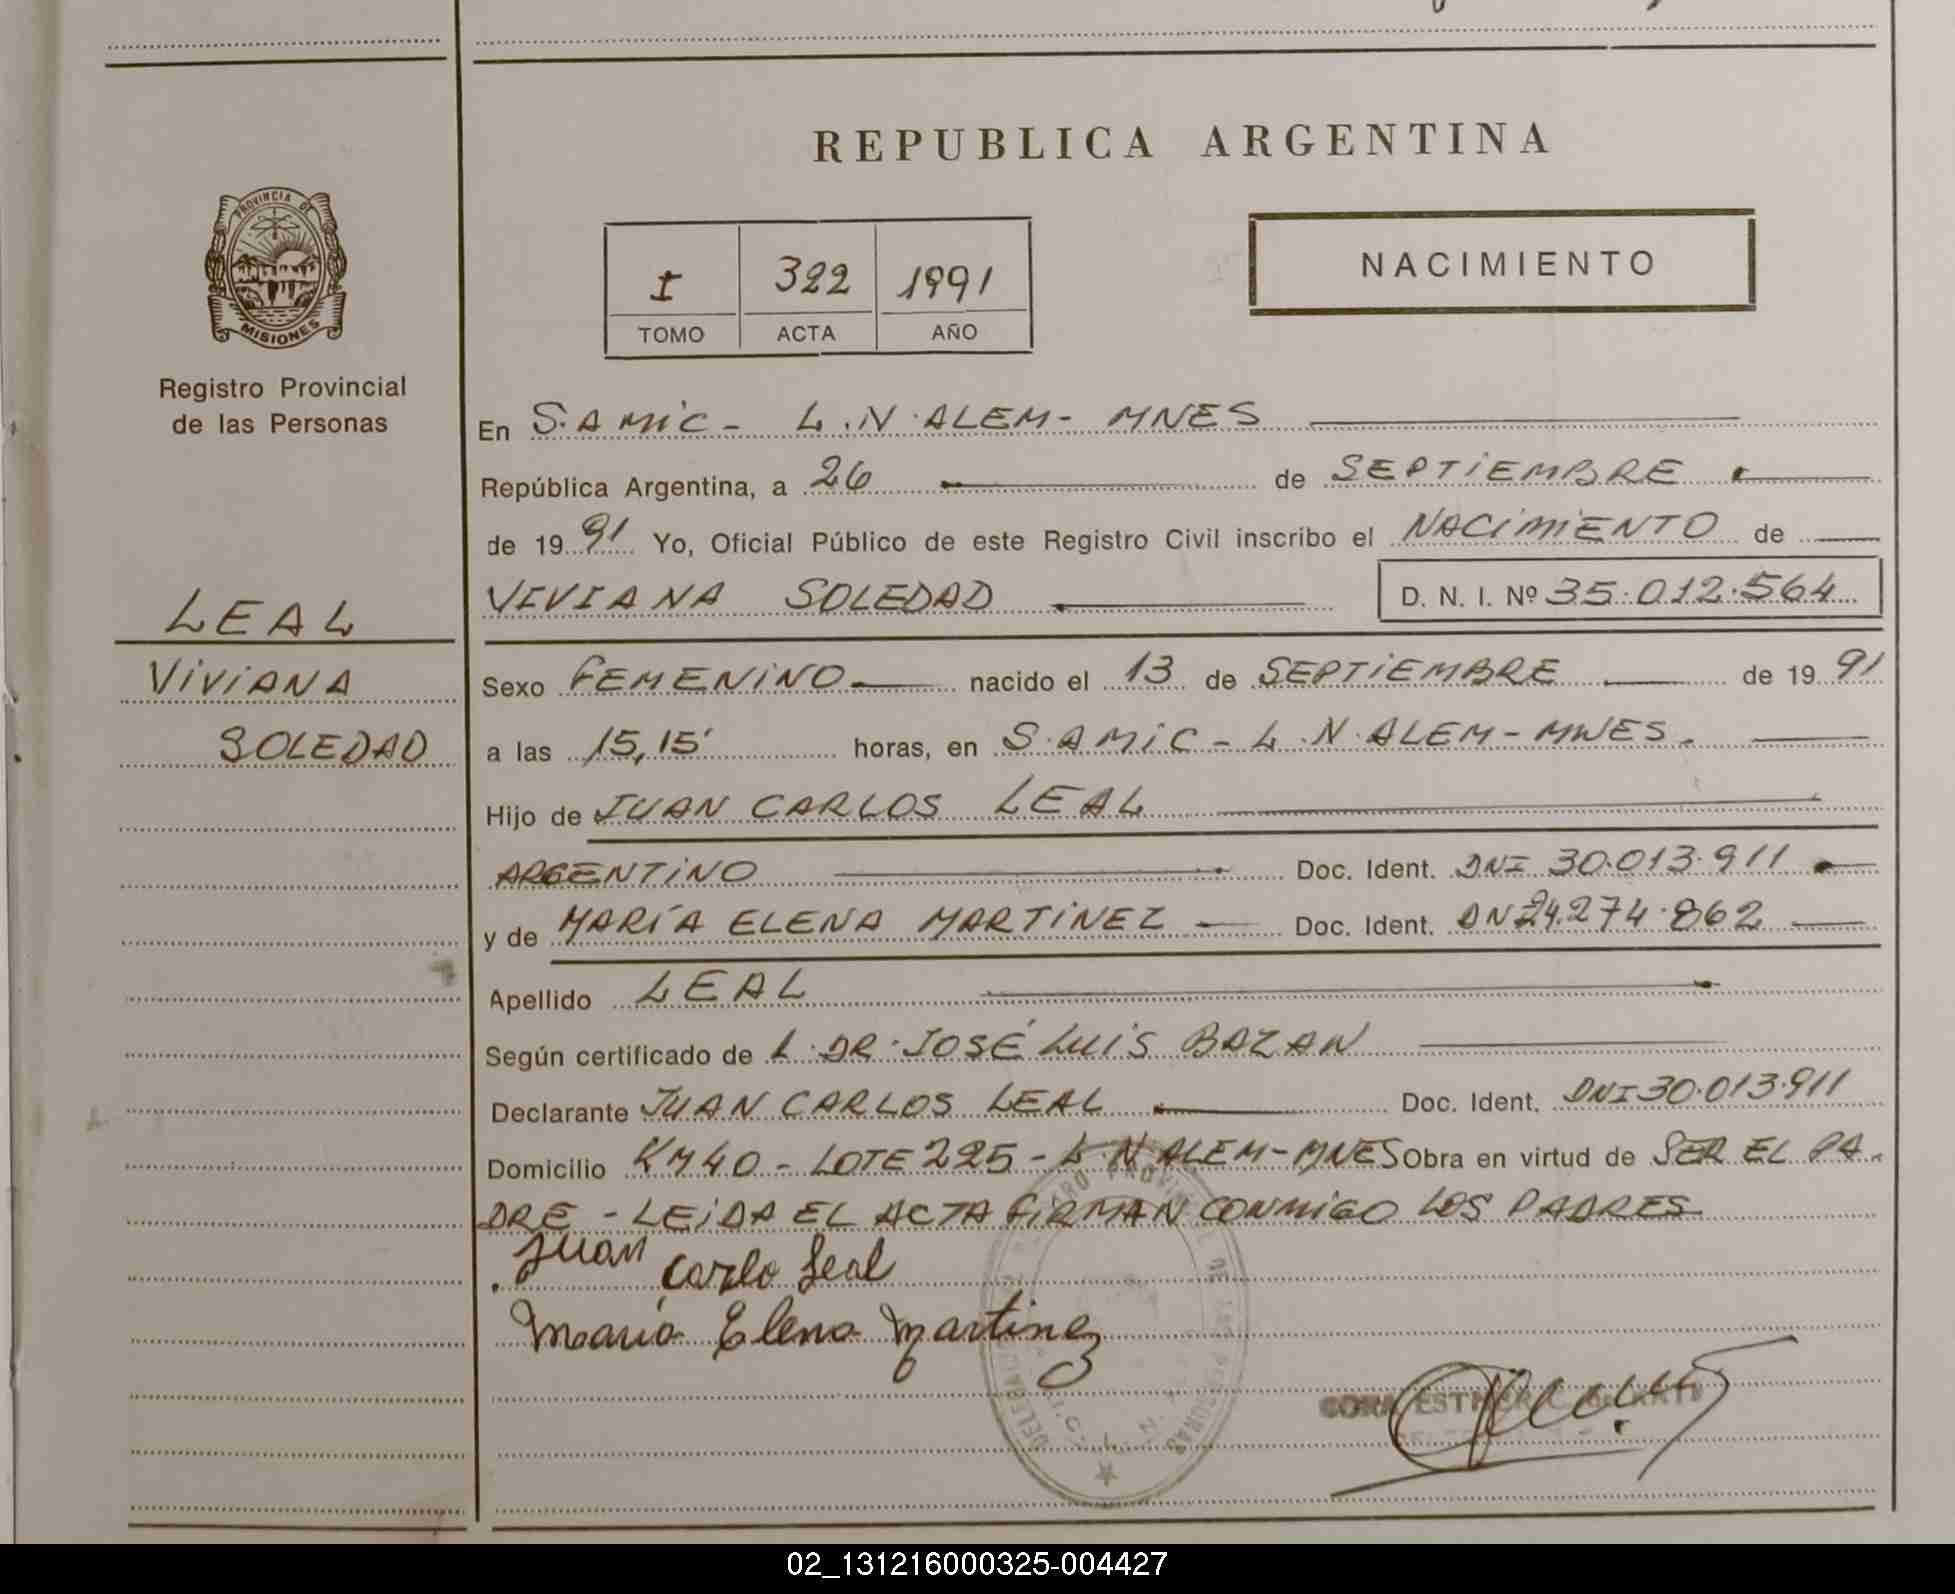 REPUBLICA ARGENTINA
PROVINCIA DE
MISIONES
Registro Provincial
de las Personas
I 322 1991
TOMO ACTA AÑO
NACIMIENTO
LEAL
VIVIANA
SOLEDAD
En S.AMIC - L.N.ALEM - MNES
República Argentina, a 26 de SEPTIEMBRE
de 1991 Yo, Oficial Público de este Registro Civil inscribo el NACIMIENTO de
VIVIANA SOLEDAD D. N. I. Nº 35.012.564
Sexo FEMENINO nacido el 13 de SEPTIEMBRE de 1991
a las 15,15' horas, en S.AMIC - L.N.ALEM - MNES.
Hijo de JUAN CARLOS LEAL
ARGENTINO Doc. Ident. DNI 30.013.911
y de MARÍA ELENA MARTINEZ Doc. Ident. DN 24.274.862
Apellido LEAL
Según certificado de L. DR. JOSÉ LUIS BAZAN
Declarante JUAN CARLOS LEAL Doc. Ident. DNI 30.013.911
Domicilio KM 40 - LOTE 225 - L N ALEM - MNES Obra en virtud de SER EL PA-
DRE - LEIDA EL ACTA FIRMAN CONMIGO LOS PADRES
Juan Carlo Leal
María Elena Martinez
02_131216000325-004427